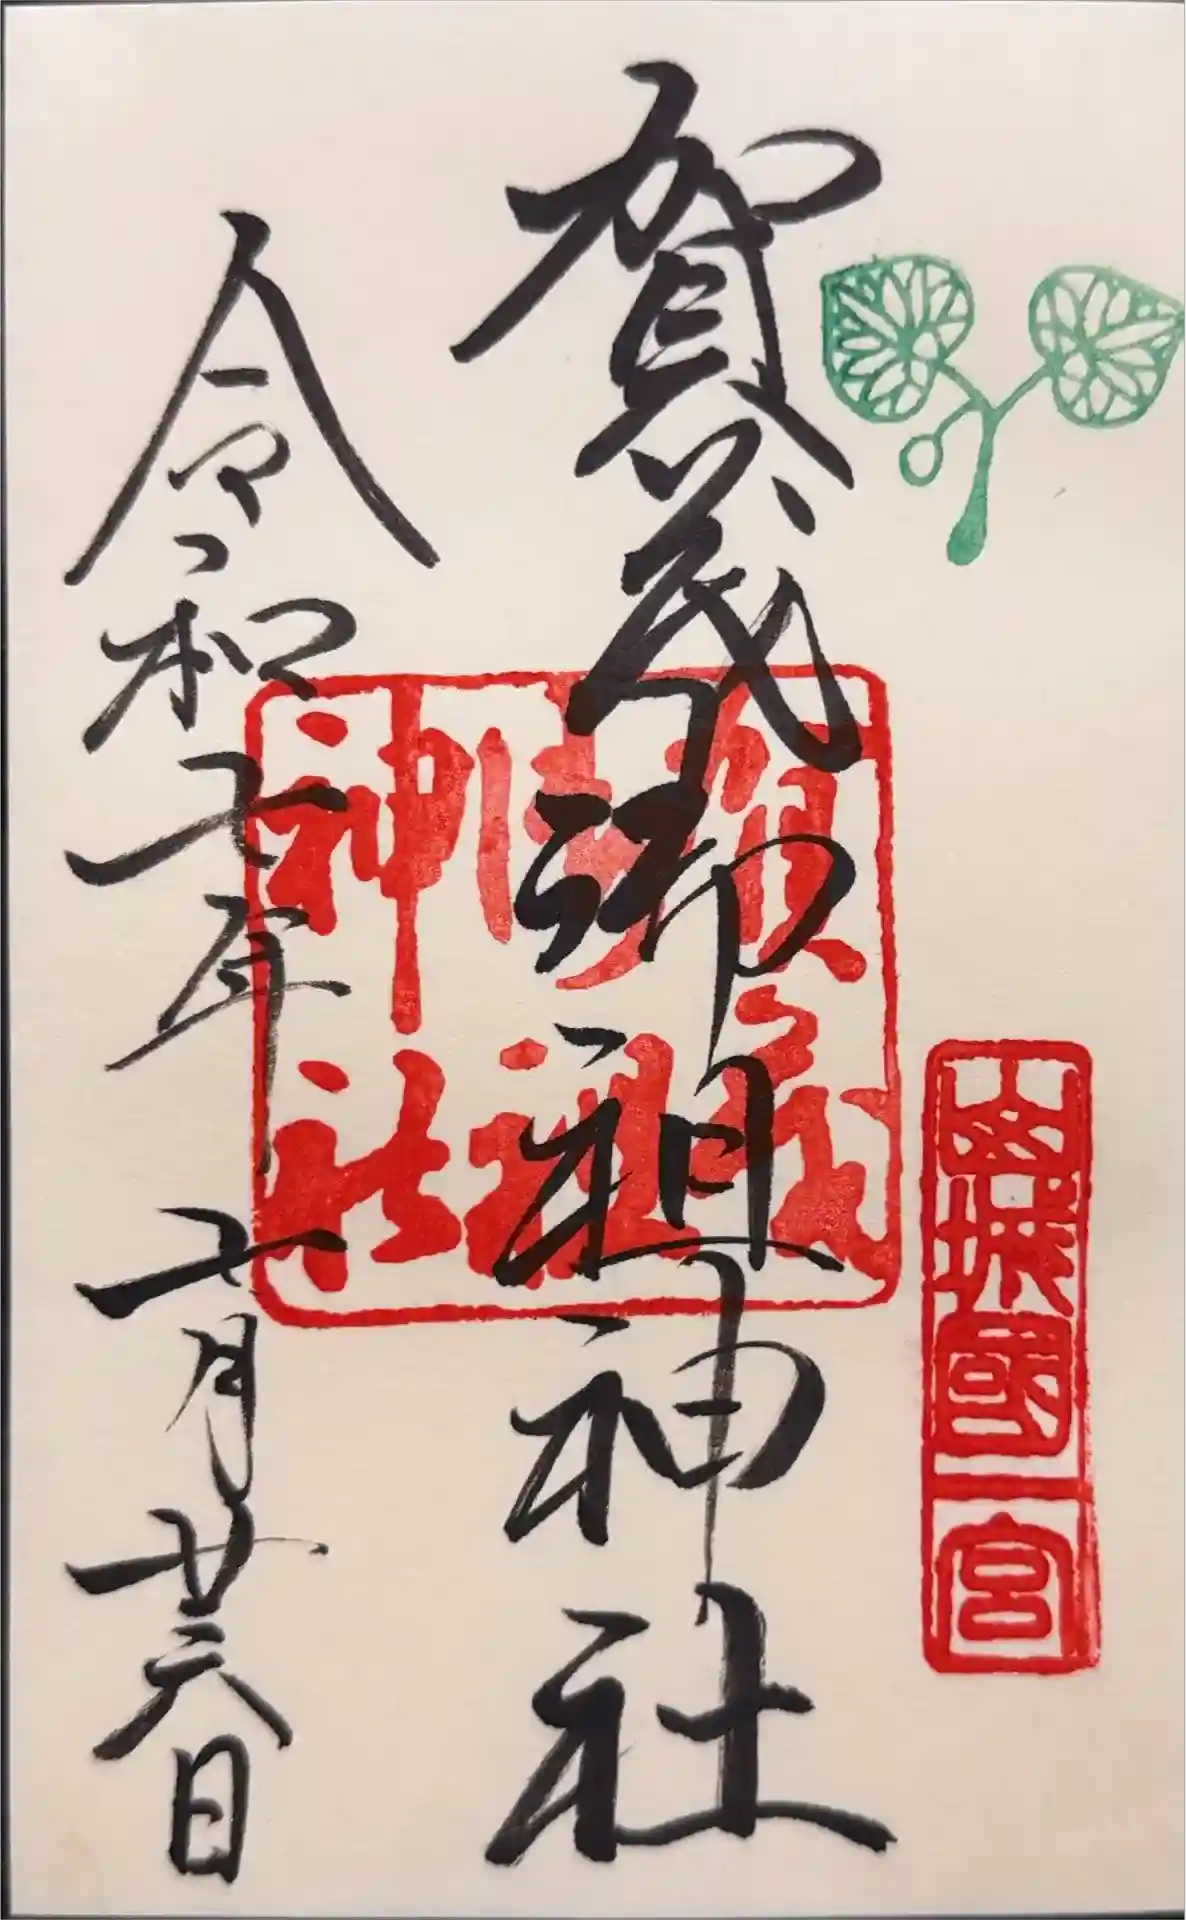 山城國一宮
賀茂御祖神社
賀茂
御祖
神社
令和七年七月廿六日